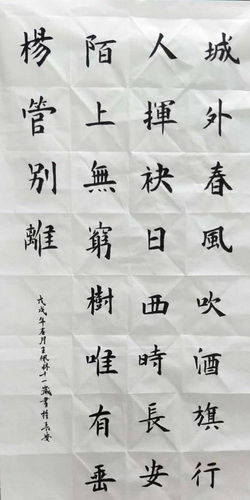 城外春風吹酒旗行
人揮袂日西時長安
陌上無窮樹唯有垂
楊管別離
戊戌年 月王佩 十一歲書於長安